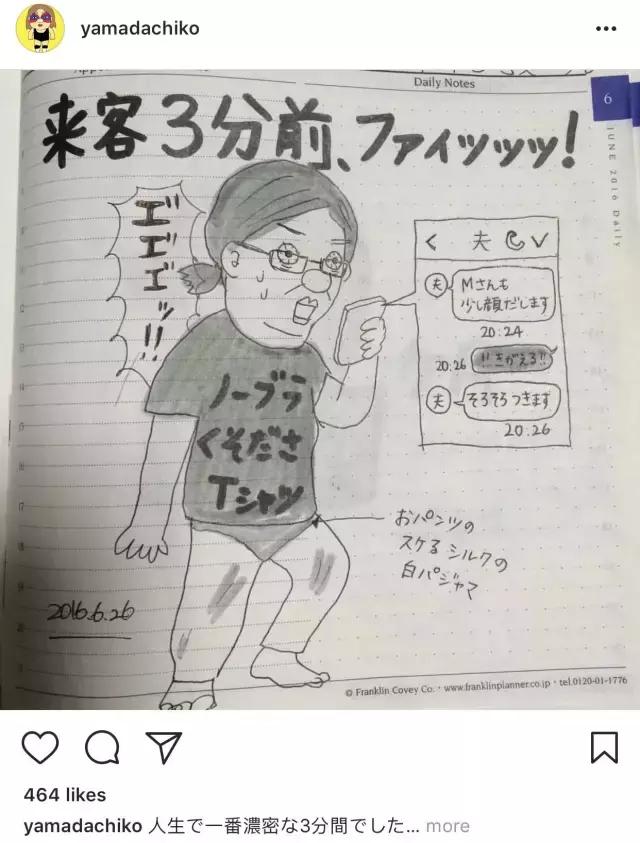 yamadachiko
Daily Notes
6
JUNE 2016 Daily
来客3分前、ファイッッッ!
エ゛
エ゛
エ゛
ッ
!!
く 夫
夫 Mさんも
少し顔だします
20:24
20:26 !!きがえる!!
夫 そろそろつきます
20.26
ノーブラ
くそださ
Tシャツ
おパンツの
スケるシルクの
白パジャマ
2016.6.26
© Franklin Covey Co. · www.franklinplanner.co.jp · tel.0120-01-1776
464 likes
yamadachiko 人生で一番濃密な3分間でした... more